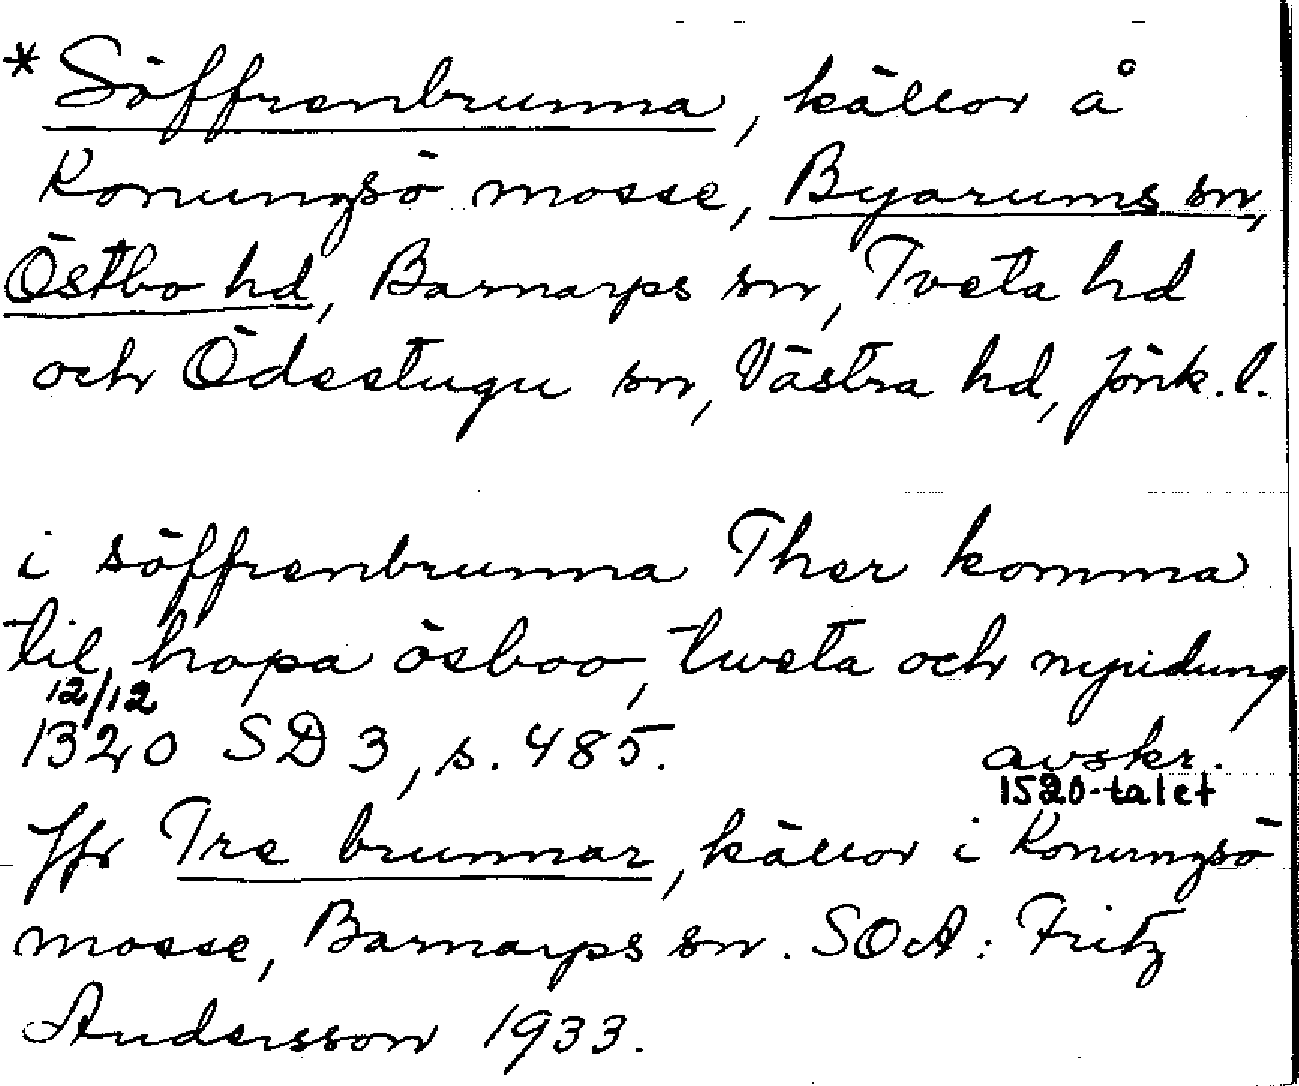 * Söffrenbrunna, källor å
Konungsö mosse, Byarums sn,
Östbo hd, Barnarps sn, Tveta hd
och Ödestugu sn, Västra hd, Jönk. l.
i söffrenbrunna Ther komma
til hopa ösboo, tweta och nyridung
12/12
1320 SD 3, s. 485. avskr.
1520-talet
Jfr Tre brunnar, källor i Konungsö
mosse, Barnarps sn. SOA: Fritz
Andersson 1933.